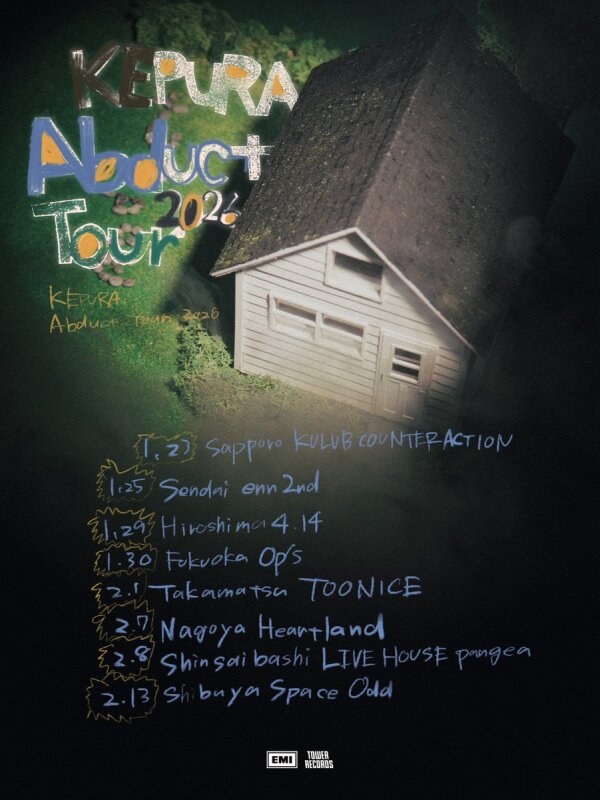 KEPURA
Abduct
Tour 2026
KEPURA
Abduct Tour 2026
1.23 Sapporo KULUB COUNTER ACTION
1.25 Sendai enn 2nd
1.29 Hiroshima 4.14
1.30 Fukuoka Op's
2.1 Takamatsu TOONICE
2.7 Nagoya Heartland
2.8 Shinsaibashi LIVE HOUSE pangea
2.13 Shibuya Space Odd
EMI
TOWER
RECORDS